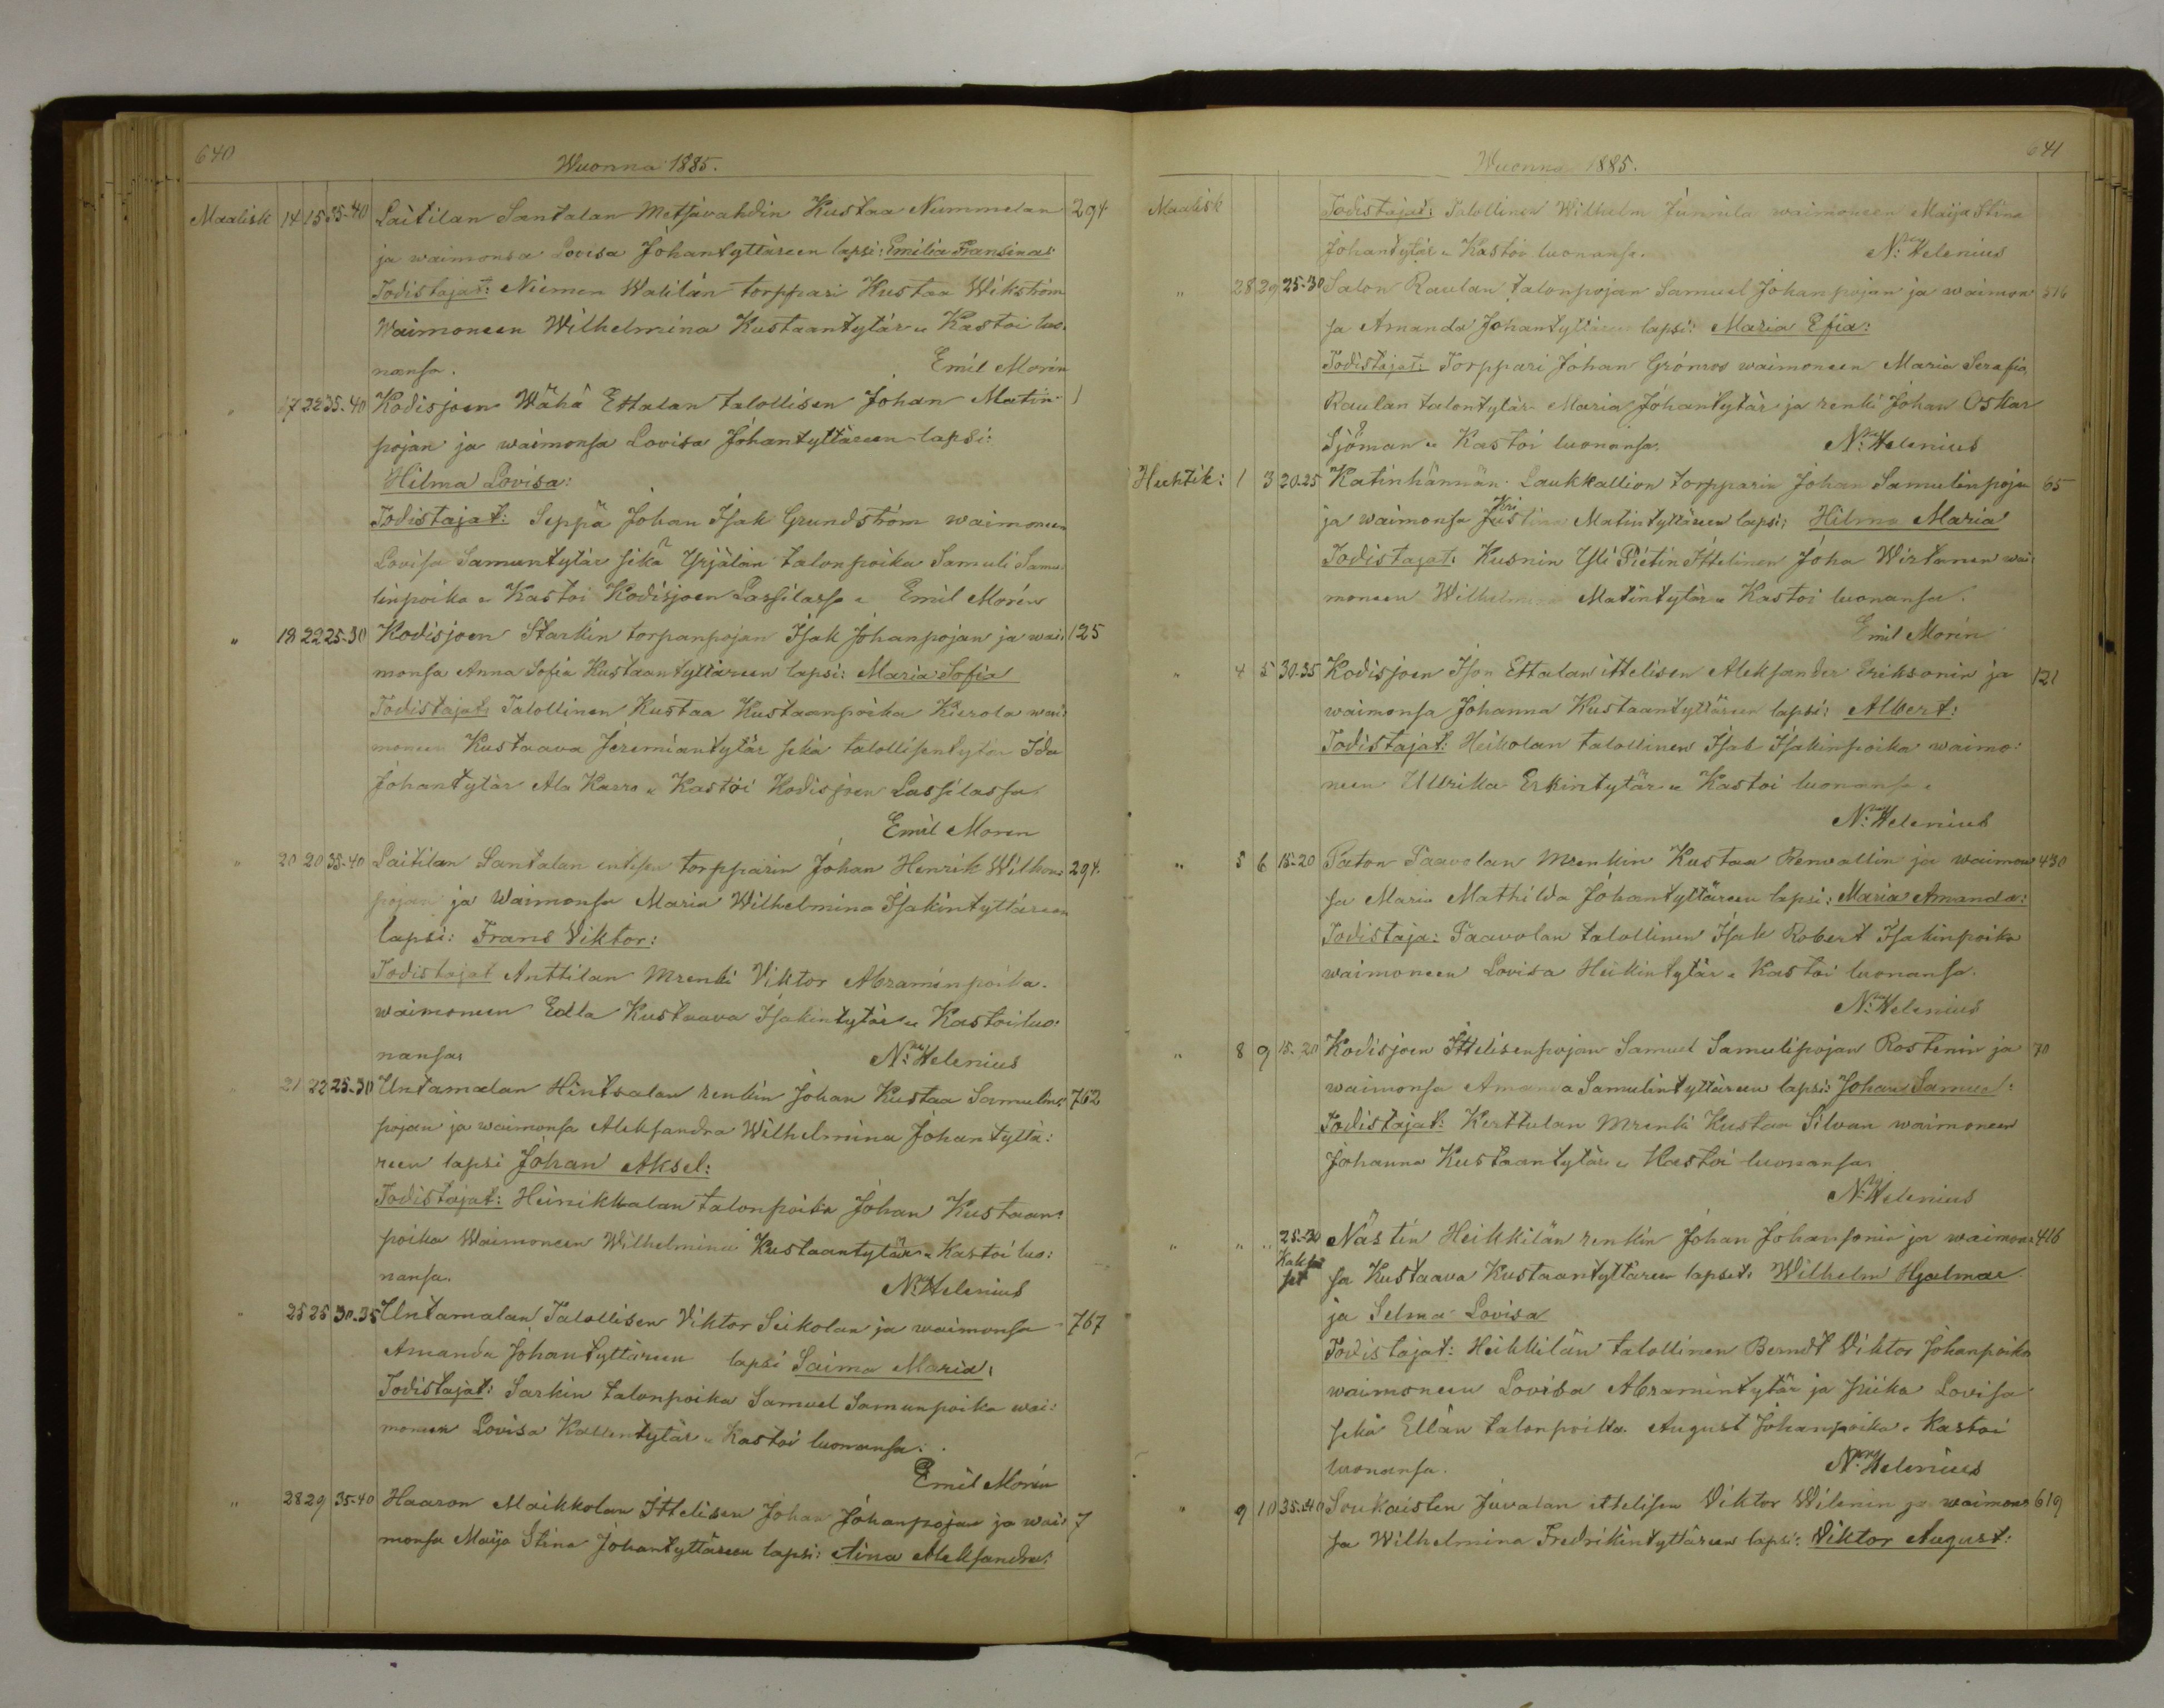 640
Wuonna 1885.
Maalisk 14 15 35-40 Laitilan Santalan Metsävahdin Kustaa Nummelan 294
ja waimonsa Lovisa Johantyttären lapsi: Emilia Fransina:
Todistajat: Niemen Walilan torppari Kustaa Wikström
Waimoneen Wilhelmina Kustaantytär " Kastoi luo-
nansa. Emil Morén
" 17 22 35-40 Kodisjoen Wähä Ettalan talollisen Johan Matin- 1
pojan ja waimonsa Lovisa Johantyttäreen lapsi:
Hilma Lovisa:
Todistajat: Seppä Johan Isak Grundström waimoneen
Lovisa Samuntytär sekä Yrjälän talonpoika Samuli Samu-
linpoika " Kastoi Kodisjoen Lassilassa " Emil Morén
" 18 22 25-30 Kodisjoen Starkin torpanpojan Isak Johanpojan ja wai- 125
monsa Anna Sofia Kustaantyttäreen lapsi: Maria Sofia
Todistajat: Talollinen Kustaa Kustaanpoika Kierola wai:
moneen Kustaava Jeremiantytär sekä talollisentytär Ida
Johantytär Ala Karro " Kastoi Kodisjoen Lassilassa
Emil Moren
" 20 20 35-40 Laitilan Santalan entisen torpparin Johan Henrik Wilhom: 294.
pojan ja Waimonsa Maria Wilhelmina Isakintyttäreen
lapsi: Frans Viktor:
Todistajat Anttilan Mrenki Viktor Abraminpoika.
waimoneen Edla Kustaava Isakintytär " Kastoi luo:
nansa, N: Helenius
" 21 22 25-30 Untamalan Hintsalan renkin Johan Kustaa Samulin: 762
pojan ja waimonsa Aleksandra Wilhelmina Johantyttä:
reen lapsi Johan Aksel:
Todistajat: Heinikkalan talonpoika Johan Kustaan:
poika Waimoneen Wilhelmina Kustaantytär " Kastoi luo:
nansa. N: Helenius
" 25 25 30-35 Untamalan Talollisen Viktor Seikolan ja waimonsa 767
Amanda Johantyttäreen lapsi Saima Maria:
Todistajat: Sarkin talonpoika Samuel Samunpoika wai:
moneen Lovisa Kallentytär " Kastoi luonansa.
Emil Morén
" 28 29 35-40 Haaron Maikkolan Ittelisen Johan Johanpojan ja wai: 7
monsa Maija Stina Johantyttäreen lapsi: Aina Aleksandra:
641
Wuonna 1885.
Maalisk Todistajat: Talollinen Wilhelm Junnila waimoneen Maija Stina
Johantytär " Kastoi luonansa. N: Helenius
" 28 29 25-30 Salon Raulan talonpojan Samuel Johanpojan ja waimon 516
sa Amanda Johantyttäreen lapsi: Maria Efia:
Todistajat: Torppari Johan Grönros waimoneen Maria Serafia
Raulan talontytär Maria Johantytär ja renki Johan Oskar
Sjöman " Kastoi luonansa. N: Helenius
Huhtik: 1 3 20-25 Katinhännän Laukkallion torpparin Johan Samulinpoja 65
ja waimonsa Justina Matintyttäreen lapsi: Hilma Maria
Todistajat: Kusnin Yli Pietin Ittelinen Joha Wirtanen wai:
moneen Wilhelmina Matintytär " Kastoi luonansa.
Emil Morén
" 4 5 30-35 Kodisjoen Ison Ettalan ittelisen Aleksander Eriksonin ja 121
waimonsa Johanna Kustaantyttäreen lapsi: Albert:
Todistajat: Heikolan talollinen Isak Isakinpoika waimo:
neen Ulrika Erkintytär " Kastoi luonansa.
N: Helenius
" 5 6 15-20 Paton Paavolan Mrenkin Kustaa Renvallin ja waimon 430
sa Maria Mathilda Johantyttäreen lapsi: Maria Amanda:
Todistaja: Paavolan talollinen Isak Robert Isakinpoika
waimoneen Lovisa Heikintytär " Kastoi luonansa.
N: Helenius
" 8 9 15-20 Kodisjoen Ittelisenpojan Samuel Samulipojan Rostenin ja 70
waimonsa Amanda Samulintyttäreen lapsi: Johan Samuel:
Todistajat: Kerttulan Mrenki Kustaa Silvan waimoneen
Johanna Kustaantytär " Kastoi luonansa.
N: Helenius
" " " 25-30 Nästin Heikkilän renkin Johan Johansonin ja waimon: 416
Kakso
set sa Kustaava Kustaantyttäreen lapset: Wilhelm Hjalmar
ja Selma Lovisa
Todistajat: Heikkilän talollinen Berndt Viktor Johanpoika
waimoneen Lovisa Abramintytär ja piika Lovisa
sekä Ellän talonpoika August Johanpoika " Kastoi
luonansa. N: Helenius
" 9 10 35-40 Soukaisten Juvalan ittelisen Viktor Wilenin ja waimon: 619
sa Wilhelmina Fredrikintyttäreen lapsi: Viktor August: